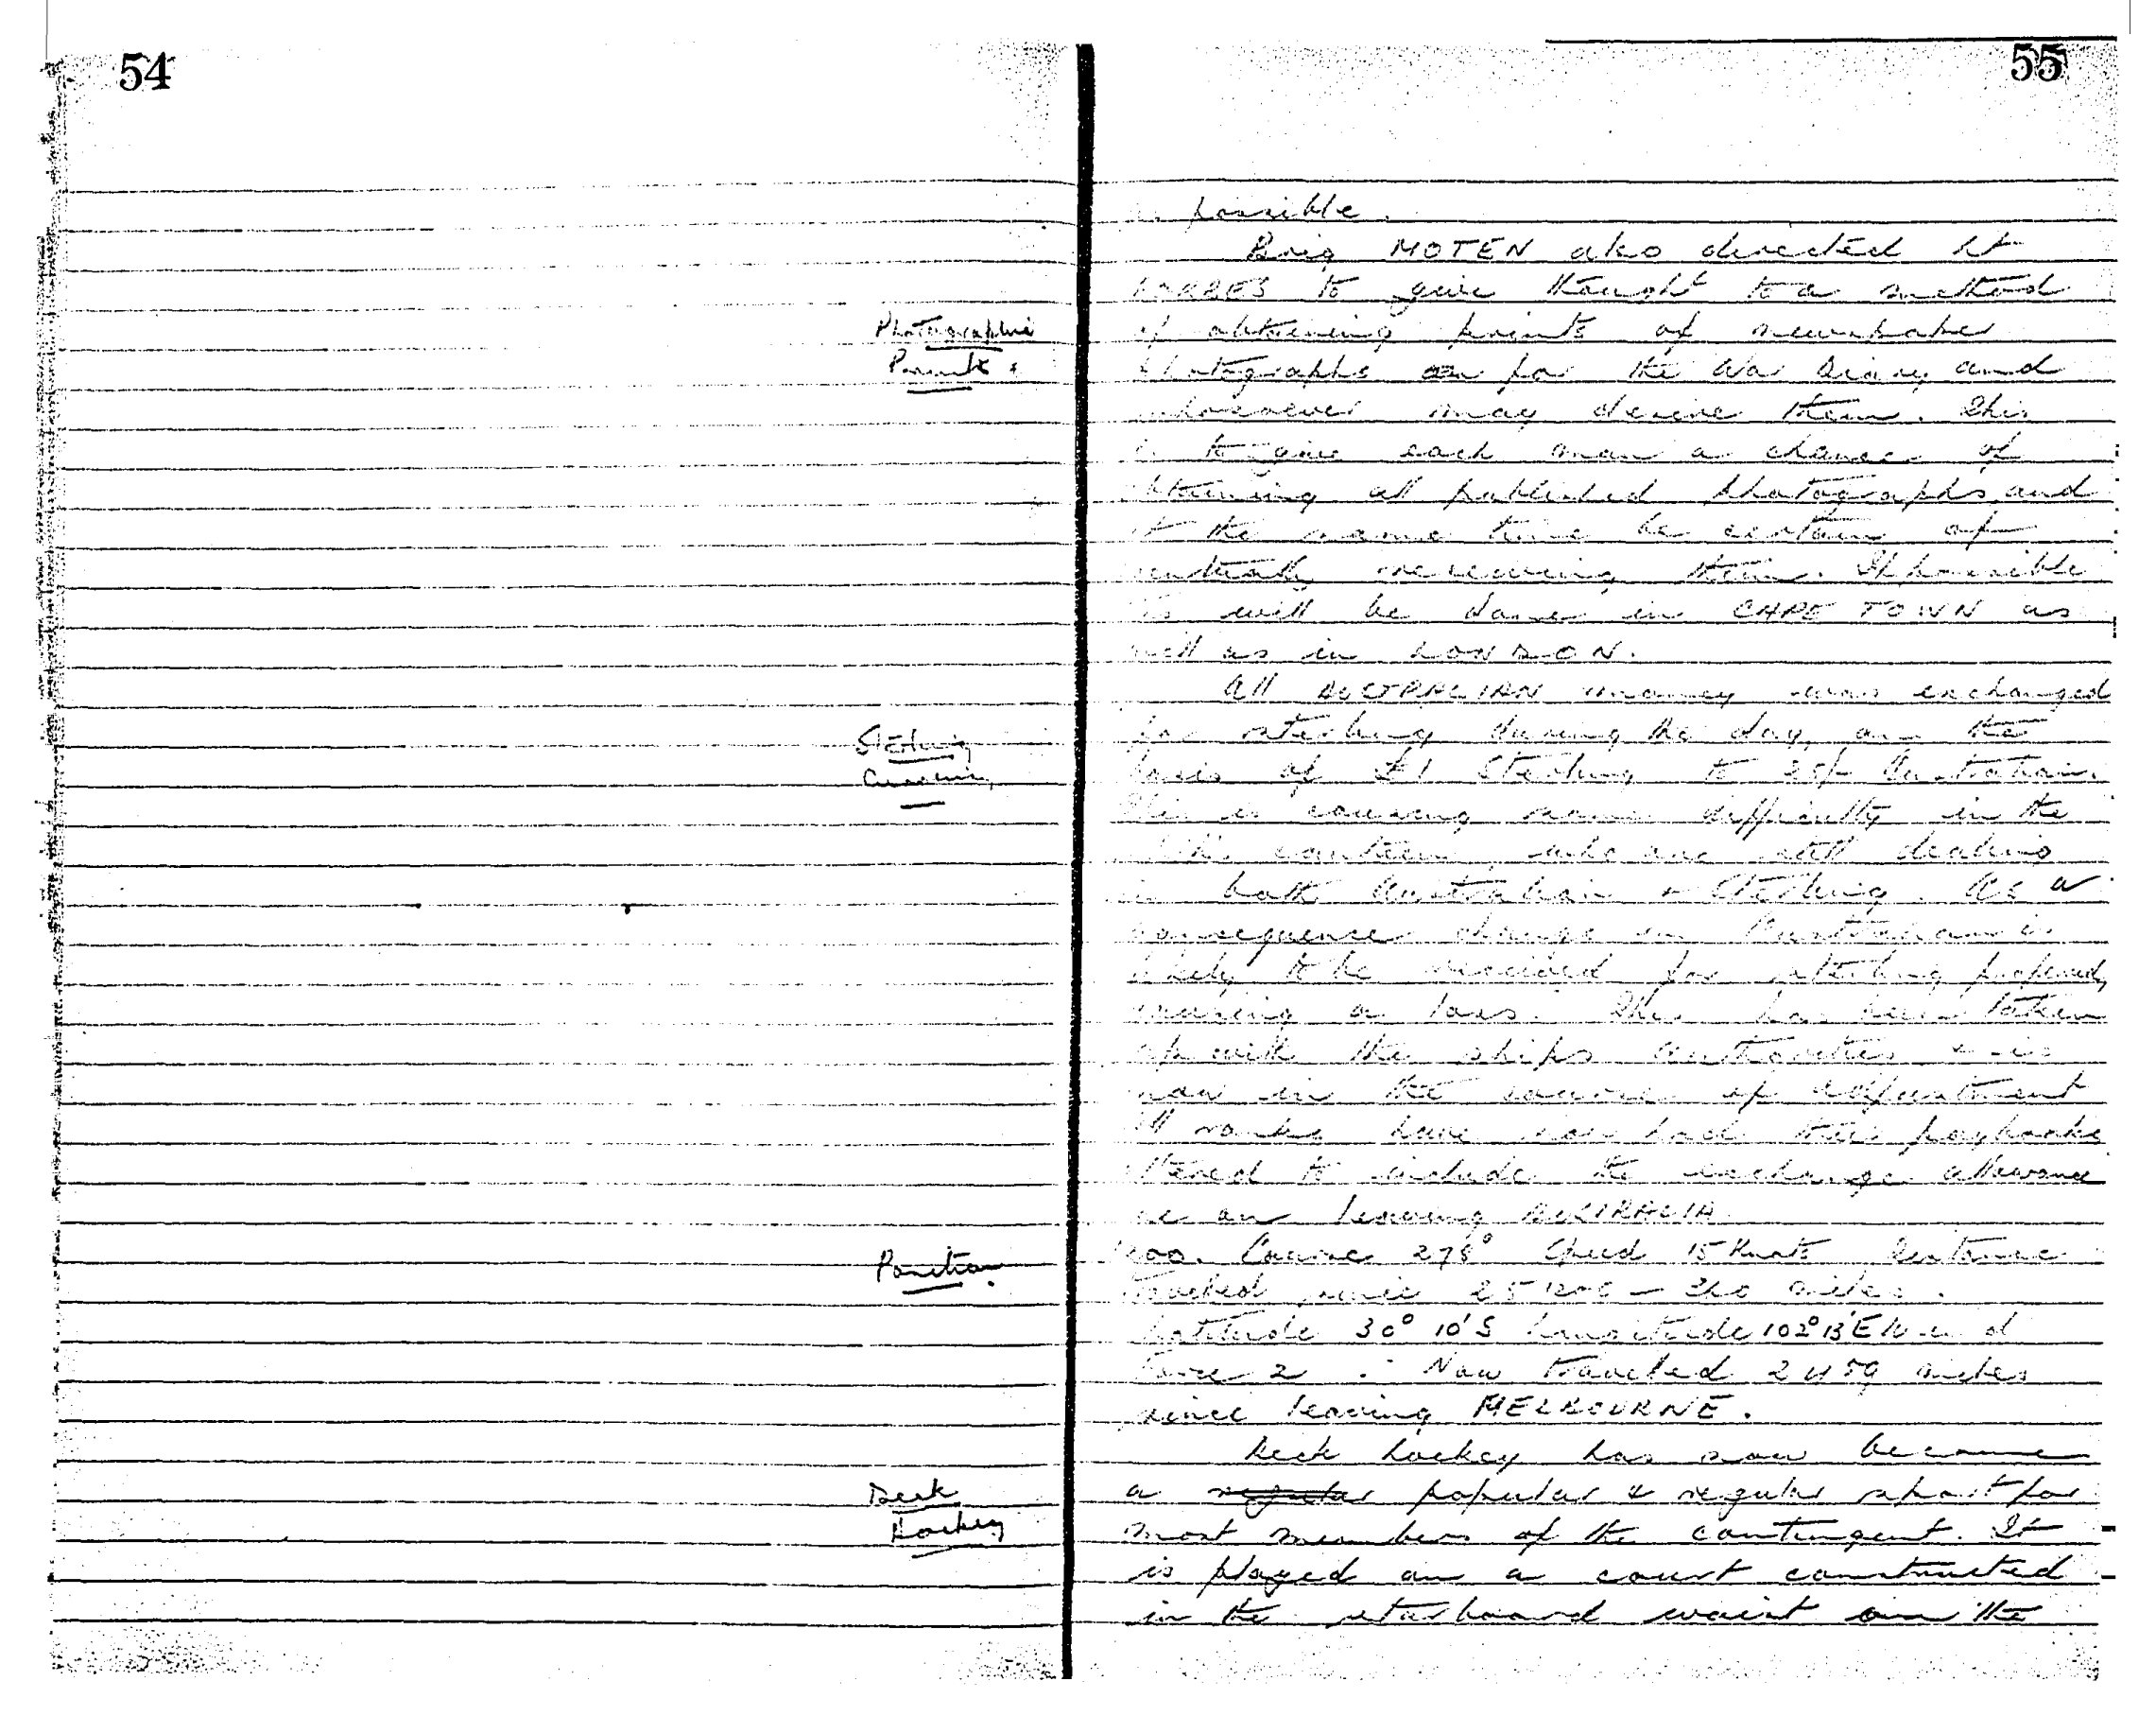 54
Photographic
Prints.
Sterling
Currency
Position.
Deck
Hockey
55
possible.
Brig MOTEN also directed Lt
to give thought to a method
of obtaining prints of newspaper
photographs for the War Diary and
whosoever may desire them. This
is to give each man a chance of
obtaining all published photographs and
at the same time be certain of
receiving them. If possible
this will be done in CAPE TOWN as
well as in LONDON.
All AUSTRALIAN money was exchanged
for sterling during the day, on the
basis of £1 Sterling to 25/- Australian.
This is causing some difficulty in the
canteen, who are still dealing
in both Australian & Sterling. As a
consequence change in Australian is
likely to be received for sterling
causing a loss. This has been taken
up with the ships authorities & is
now in the course of adjustment
All ranks have now had their paybooks
altered to include the exchange allowance
on leaving AUSTRALIA.
Course 278° Speed 15 Knots Distance
travelled since miles.
Latitude 30° 10' S Longitude 102° 13' E Wind
force 2. Now travelled 2459 miles
since leaving MELBOURNE.
Deck hockey has now become
a regular popular & regular sport for
most members of the contingent. It
is played on a court constructed
in the starboard waist on the